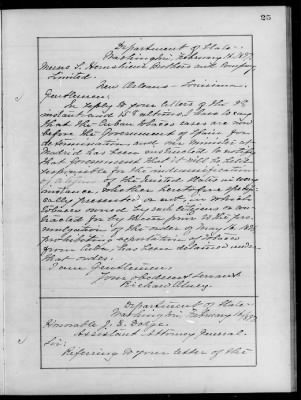 25
Department of State.
Washington, February 16, 1897.
Messrs S. Hernsheim Brothers and Company
Limited.
New Orleans – Louisiana.
Gentlemen:
In reply to your letters of the
instant and 15th ultimo, I have to say
that the Cuban tobacco cases are now
before the Government of Spain for
determination and our Minister at
Madrid has been instructed to notify
that Government that it will be held
responsible for the indemnification
of citizens of the United States in every
instance, whether heretofore specifi-
cally presented or not, in which
tobacco owned by such citizens or con-
tracted for by them prior to the pro-
mulgation of the order of May 16, 1896
prohibiting exportation of tobacco
from Cuba, has been detained under
that order.
I am Gentlemen,
Your obedient servant
Richard Olney.
Department of State.
Washington, February 16, 1897.
Honorable J. E. Dodge.
Assistant Attorney General.
Sir:
Referring to your letter of the